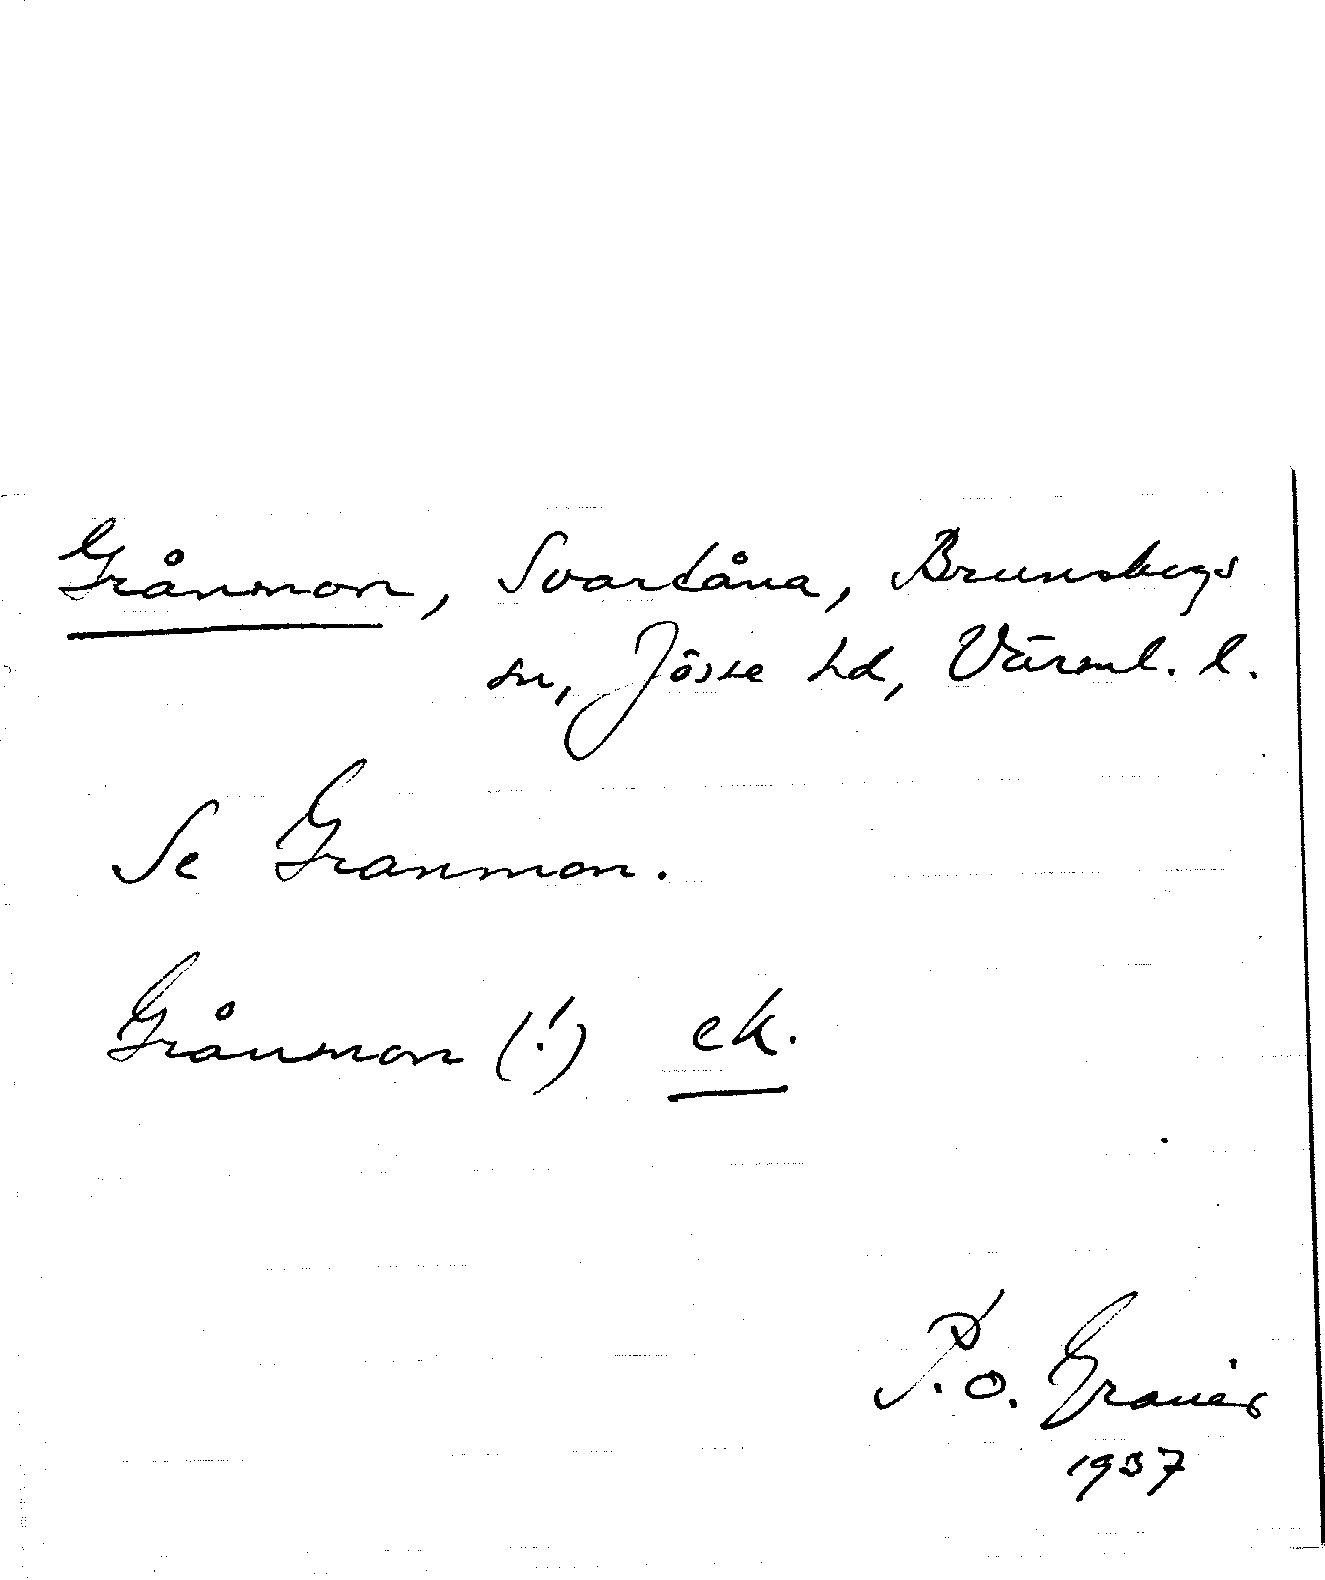 Grånmon, Svartåna, Brunsbergs
sn, Jösse hd, Värml. l.
Se Granmon.
Grånmon (!) ek.
P. O. Granér
1937